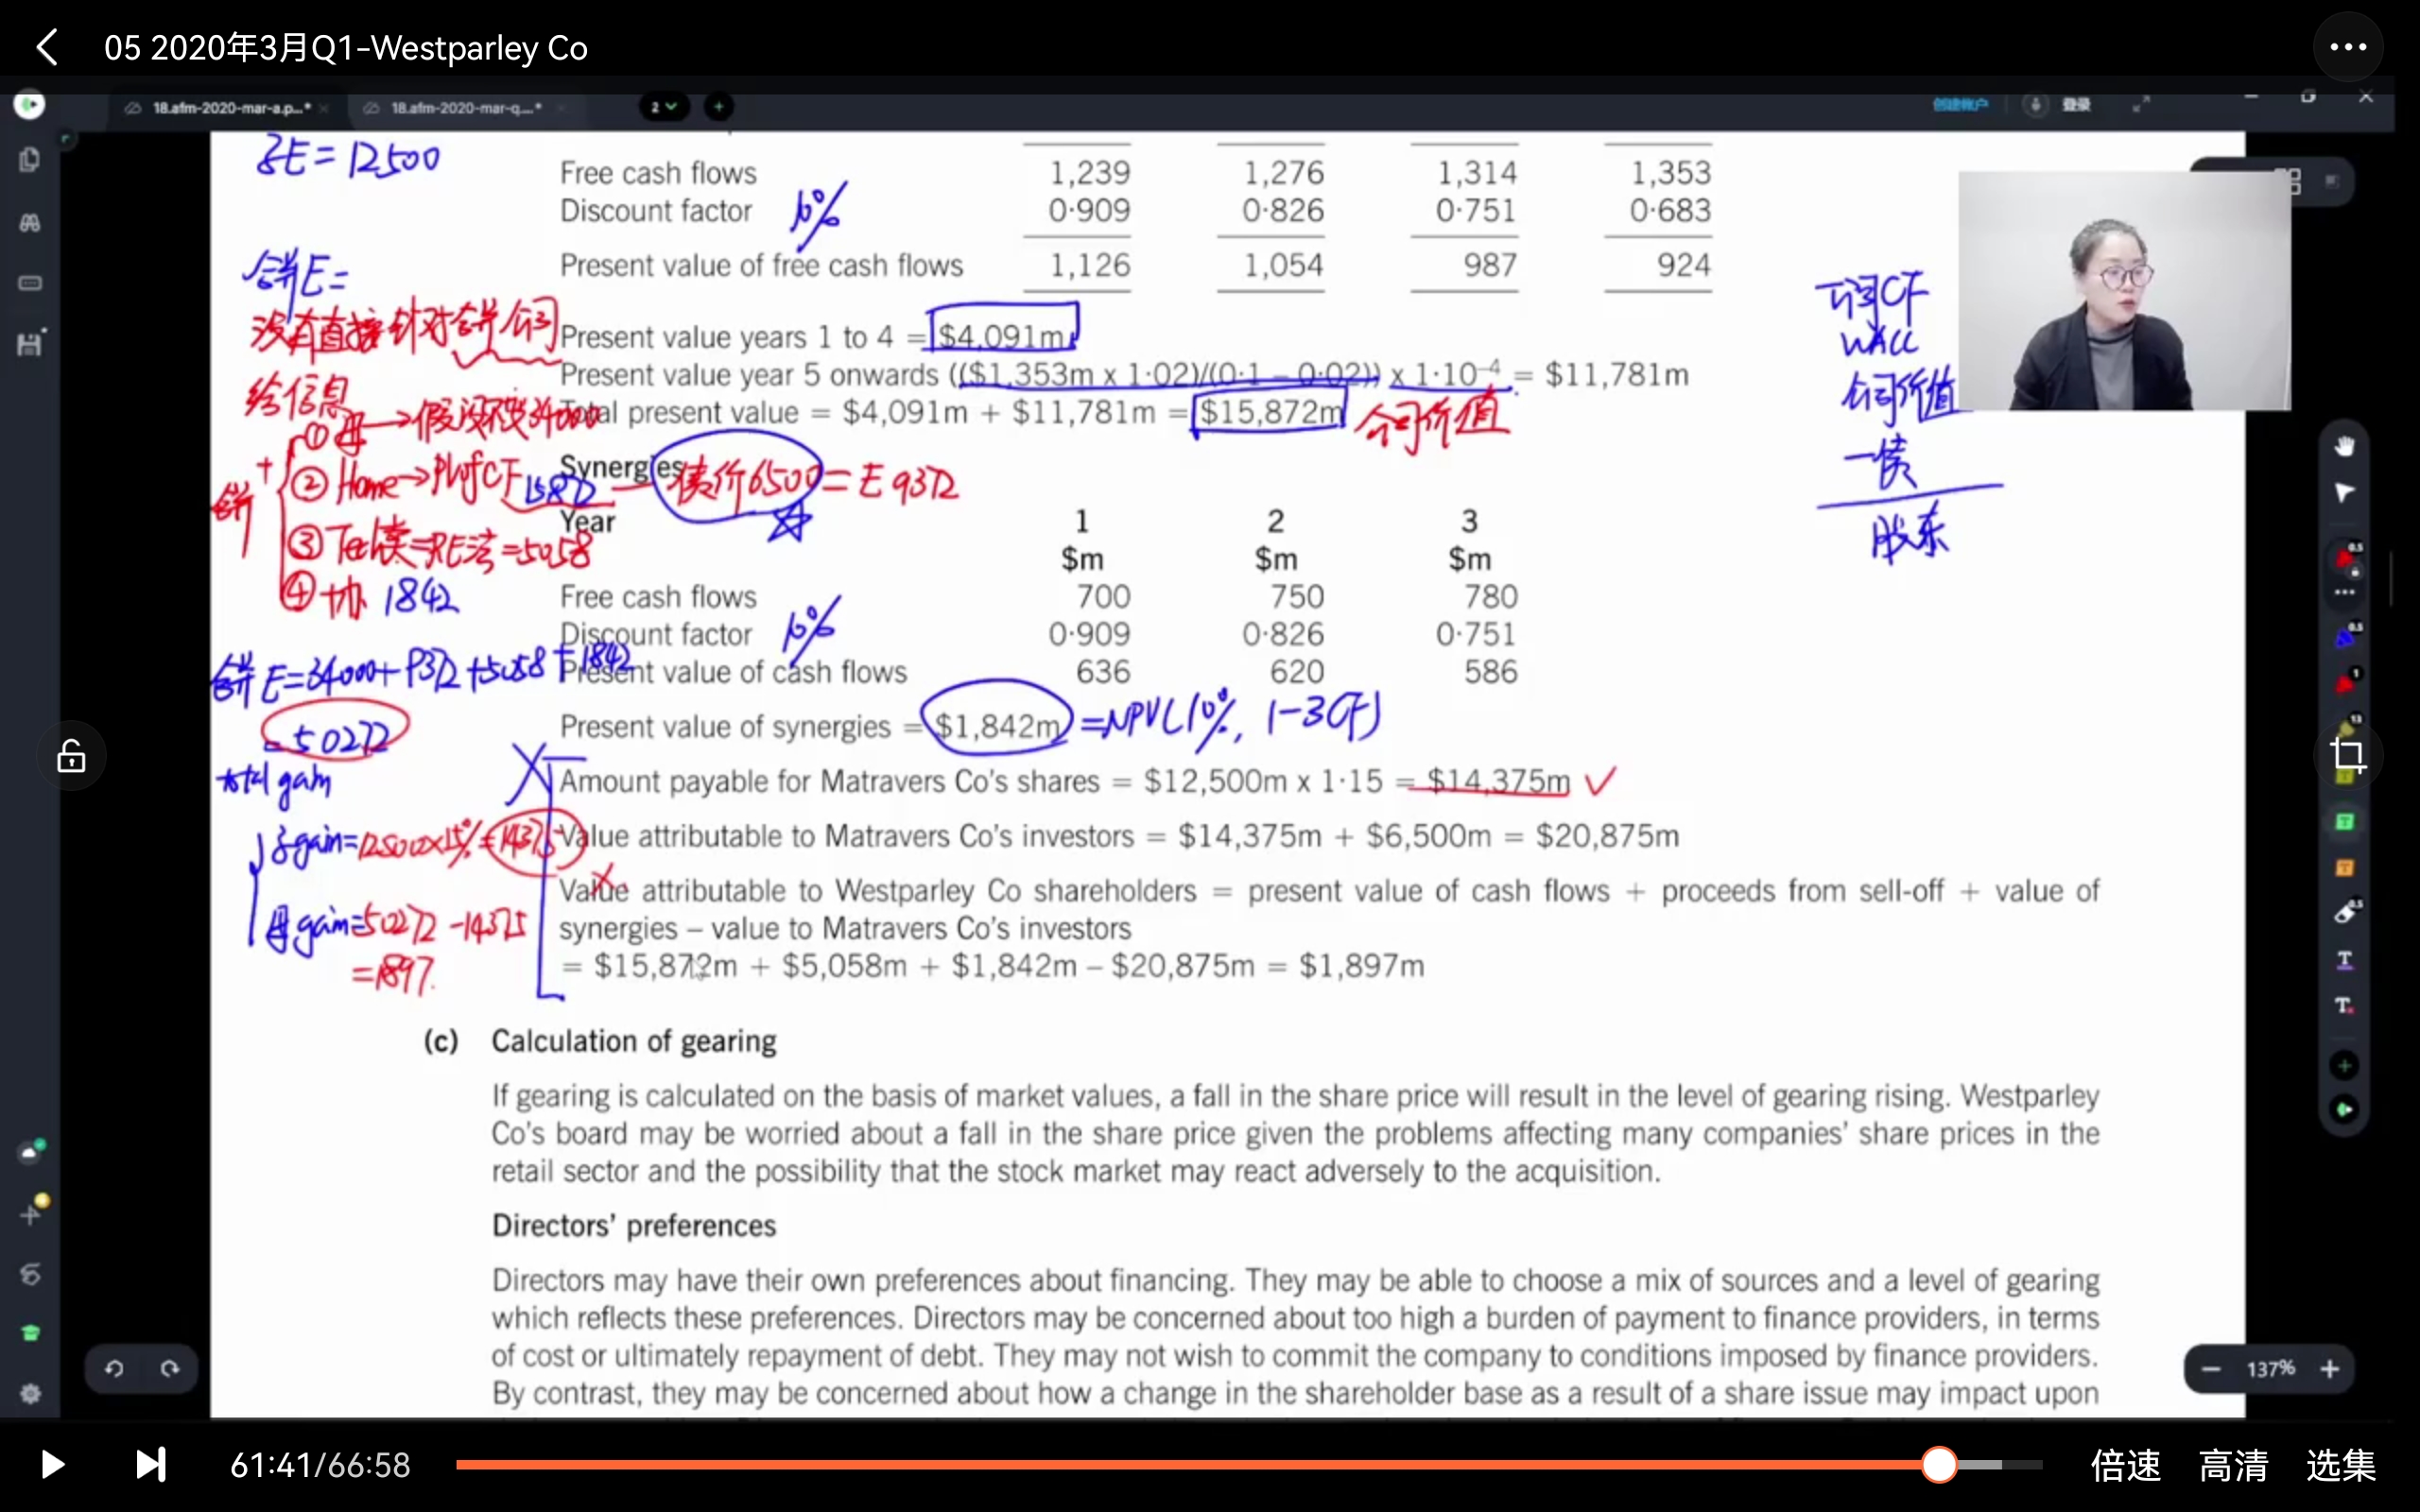 05 2020年3月Q1-Westparley Co
18.afm-2020-mar-a.p...*
18.afm-2020-mar-q....*
2
创建帐户
登录
子E=12500
Free cash flows 1,239 1,276 1,314 1,353
Discount factor 10% 0·909 0·826 0·751 0·683
Present value of free cash flows 1,126 1,054 987 924
合并E=
没有直接针对合并公司
给信息
Present value years 1 to 4 = $4,091m
Present value year 5 onwards (($1,353m x 1·02)/(0·1 – 0·02)) x 1·10–4 = $11,781m
Total present value = $4,091m + $11,781m = $15,872m 公司价值
①母→假设没变34000
②Home→PVofCF 15872 - 债价6500=E 9372
③Tech卖=PE法=5058
④协 1842
合并
CF
WACC
公司价值
一债
股东
Synergies
Year 1 2 3
$m $m $m
Free cash flows 700 750 780
Discount factor 10% 0·909 0·826 0·751
Present value of cash flows 636 620 586
合并E=34000+9372+5058+1842
=50272
Present value of synergies = $1,842m =NPV(10%, 1-3CF)
total gain
Amount payable for Matravers Co's shares = $12,500m x 1·15 = $14,375m ✓
子gain=12500×15%=
Value attributable to Matravers Co's investors = $14,375m + $6,500m = $20,875m
Value attributable to Westparley Co shareholders = present value of cash flows + proceeds from sell-off + value of
synergies – value to Matravers Co's investors
母gain=50272-14375
=1897.
= $15,872m + $5,058m + $1,842m – $20,875m = $1,897m
(c) Calculation of gearing
If gearing is calculated on the basis of market values, a fall in the share price will result in the level of gearing rising. Westparley
Co's board may be worried about a fall in the share price given the problems affecting many companies' share prices in the
retail sector and the possibility that the stock market may react adversely to the acquisition.
Directors' preferences
Directors may have their own preferences about financing. They may be able to choose a mix of sources and a level of gearing
which reflects these preferences. Directors may be concerned about too high a burden of payment to finance providers, in terms
of cost or ultimately repayment of debt. They may not wish to commit the company to conditions imposed by finance providers.
By contrast, they may be concerned about how a change in the shareholder base as a result of a share issue may impact upon
137%
61:41/66:58
倍速 高清 选集